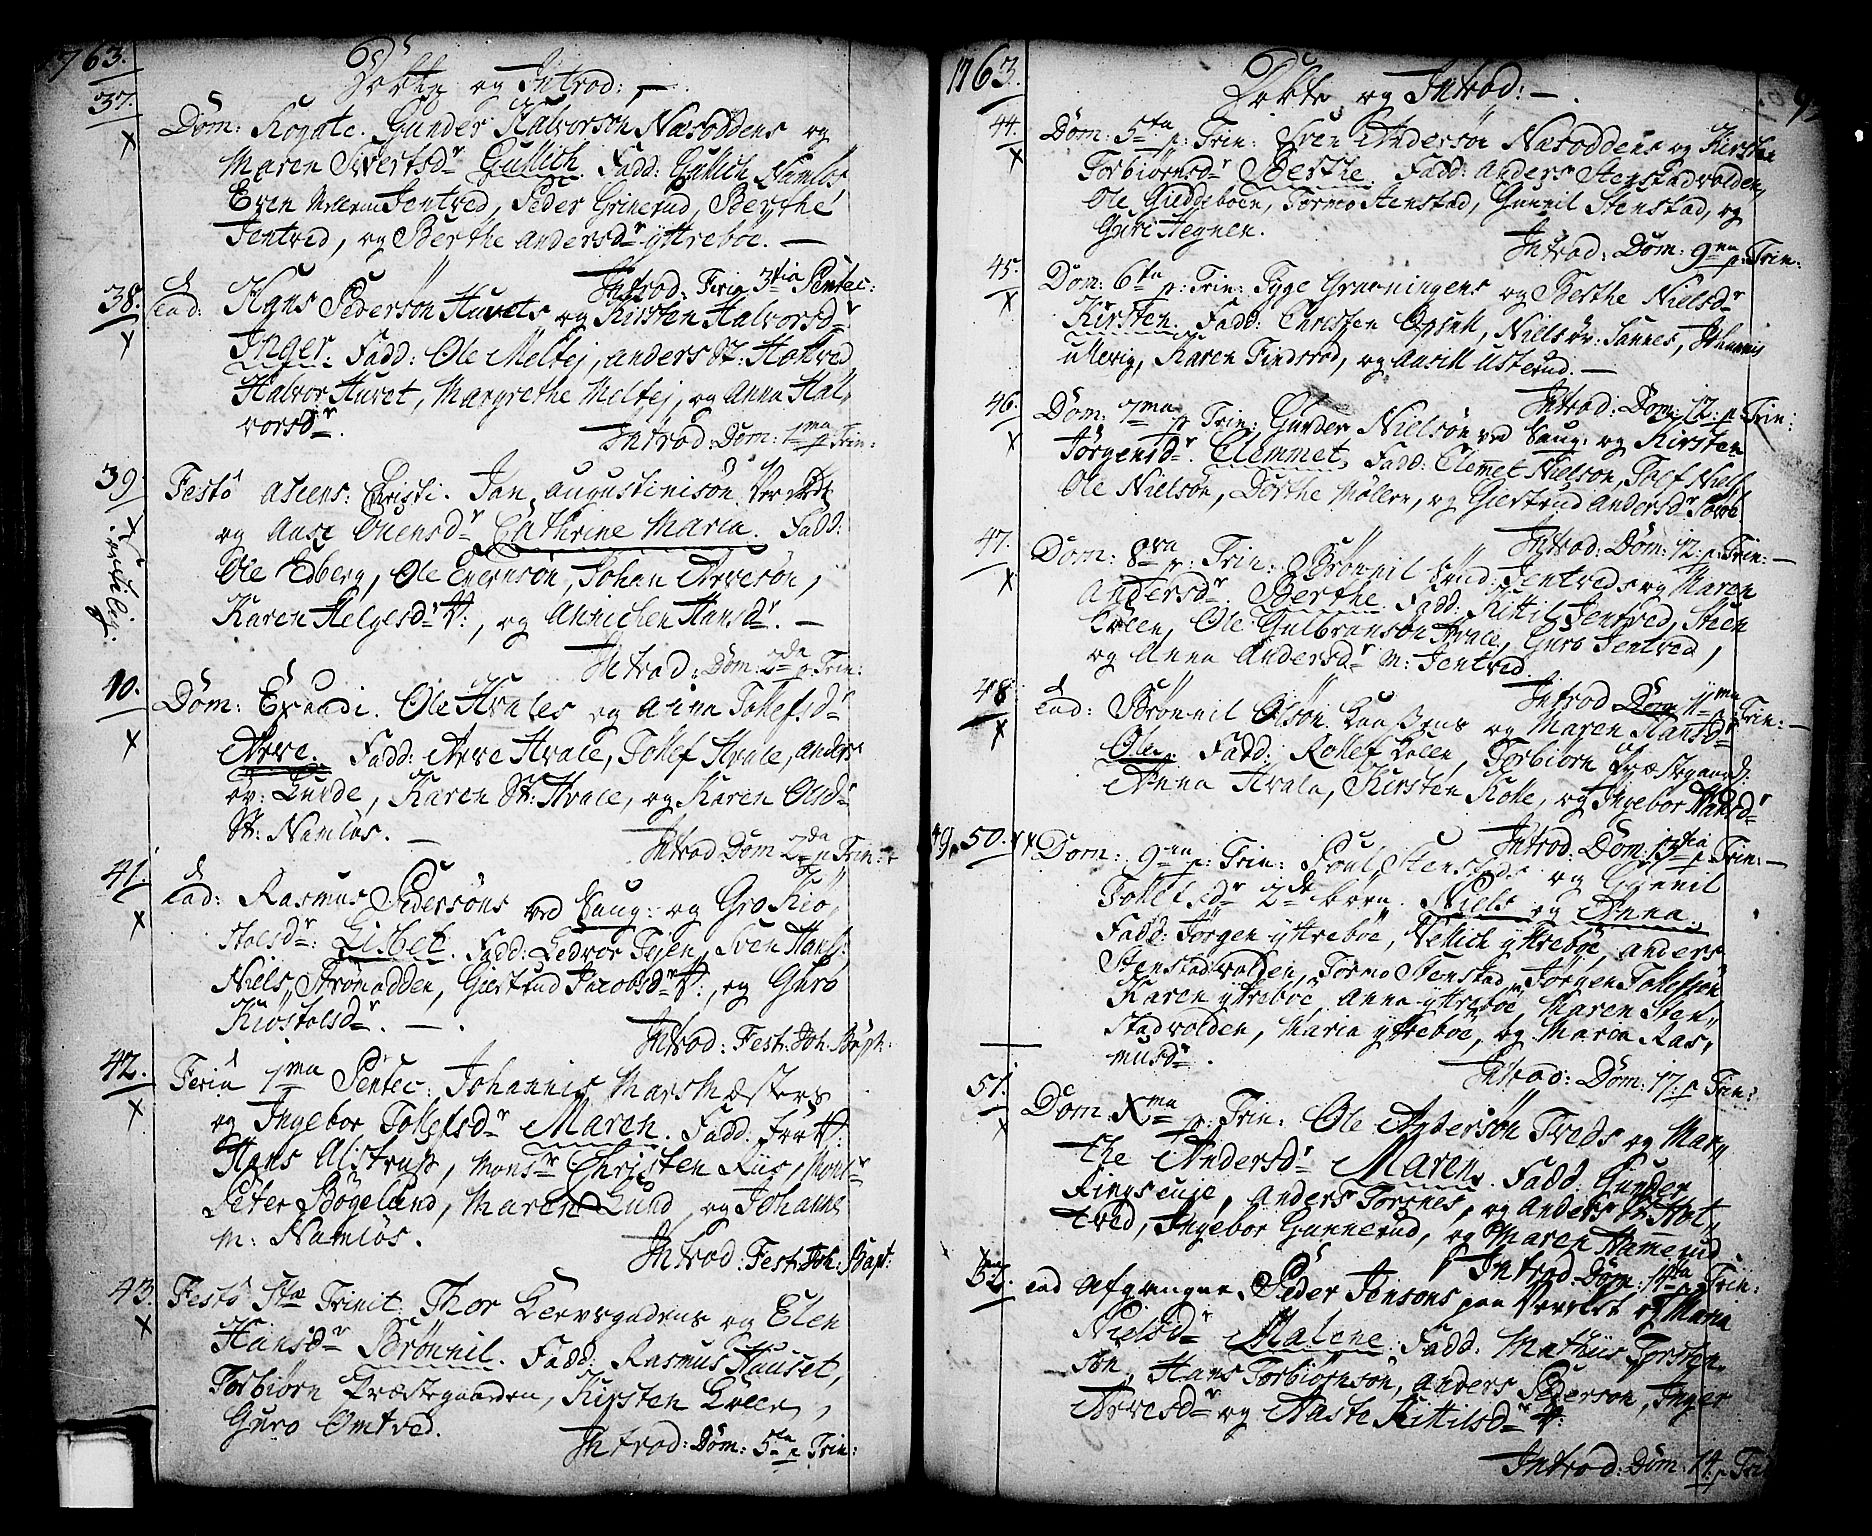 1763.
Døbte og Introd: —
37.
Dom: Rogate. Gunder Halvorsøn Næsoddens og
Maren Sivertsdr Gullich. Fadd: Gullich Namløs,
Even Jentved, Peder Grinerud, Berthe
Jentved, og Berthe Andersdr yttreböe. —
Introd: Feria 3tia Pentec:
38.
Eod: Hans Pedersøn Huvets og Kirsten Halvorsdr
Inger. Fadd: Ole Moltej, Anders St: Holtved
Halvor Huvet, Margrethe Moltej, og Anna Hal,
vorsdr.
Introd: Dom: 1ma p Trin:
39.
Festo Ascens: Christi. Jan Augustinisøn
og Aase Chathrine Maria. Fadd:
Ole Edberg, Ole Evensøn, Johan Arvesøn,
Karen Helgesdr V:, og Annichen Hansdr. —
Introd: Dom: 2da p Trin:
40.
Dom: Exaudi. Ole Hvales og Anna Tollefsdr
Arve. Fadd: Arve Hvale, Tollef Hvale, Anders
öv: Lunde, Karen St: Hvale, og Karen Olsdr
St: Namløs. —
Introd Dom 2da p Trin:
41.
Eod: Rasmus Pedersøns ved Laug: og Gro Kiö,
stolsdr: Lisbet. Fadd: Ledvor Teien, Sven Hans:
Niels Strømodden, Giertrud Jacobsdr V:, og Guro
Kiöstolsdr. —
Introd: Fest: Joh. Bapt:
42.
Feria 1ma Pentec: Johannis Marsmæsters
og Ingebor Tollefsdr Maren. Fadd:
Hans Alstrup, Monsr Christen Riis, Monsr
Peter Bögelund, Maren Lund, og Johanne
m: Namløs.
Introd: Fest: Joh: Bapt:
43.
Festo Stæ Trinit: Thor og Elen
Hansdr Brönnil. Fadd: Rasmus Hauset,
Torbiørn Præstegaarden, Kirsten Kleen,
Guro Omtved.
Introd: Dom: 5ta p Trin:
1763.
Døbte og Introd: —
44.
Dom: 5ta p: Trin: Sven Andersøn Næsoddens og Kirsten
Torbiørnsdr Berthe. Fadd: Anders Stenstadvolden,
Ole Guddeboen, Tormo Stenstad, Gunnil Stenstad, og
Guri Hegnen.
Introd: Dom: 9na p Trin:
45.
Dom: 6ta p: Trin: Tyge Gravningens og Berthe Nielsdr
Kirsten. Fadd: Christen Opsull, Niels öv: Sannes, Johannis
Ullevig, Karen Findsrod, og Aasill Usterud. —
Introd: Dom: 12: p Trin:
46.
Dom: 7ma p Trin: Gunder Nielsøn ved Laug: og Kirsten
Jörgensdr. Clemmet. Fadd: Clemet Nielsøn,
Ole Nielsøn, Dorthe Møllen, og Giertrud Andersdr
Introd: Dom: 12: p: Trin: —
47.
Dom: 8va p: Trin: Brönnil Jentveds og Maren
Andersdr. Berthe. Fadd: Kittil Jentved, Sten
Kleen, Ole Gulbransøn Hvale, Guro Jentved,
og Anna Andersdr m: Jentved.
Introd Dom 11ma p Trin: —
48.
Eod: Brönnil Olsøn og Maren Hansdr
Ole. Fadd: Rollef Kleen, Torbiørn Præstegaard:
Anna Hvale, Kirsten Kolle, og Ingebor Hansdr
Introd: Dom: 13tia p Trin: —
49, 50.
Dom: 9na p: Trin: Poul Stenstads og Gunnil
Tollefsdr 2de börn. Niels og Anna.
Fadd: Jörgen yttreböe, Vellich yttreböe, Anders
Stenstadvolden, Tormo Stenstad, Jörgen Tollefsøn
Karen yttreböe, Anna yttreböe, Maren Sten,
stadvolden, Maria yttreböe, og Maren Ras,
musdr.
Introd: Dom: 17. p Trin:
51.
Dom: Xma p: Trin: Ole Andersøn Tveds og Mar,
the Andersdr Maren. Fadd: Gunder
Ringseuje, Anders Torsnes, og Anders St: Holt,
tved, Ingebor Gunnerud, og Maren Hamerud
Introd Dom: 14ta p Trin:
52.
Eod Afgangne Peder Jensøns paa Verelst og Maria
Nielsdr Malene. Fadd: Mathis Torsten,
søn, Hans Torbiørnsøn, Anders Pedersøn, Inger
Arvesdr og Aaste Kittilsdr V:
Introd: Dom: 14. p Trin